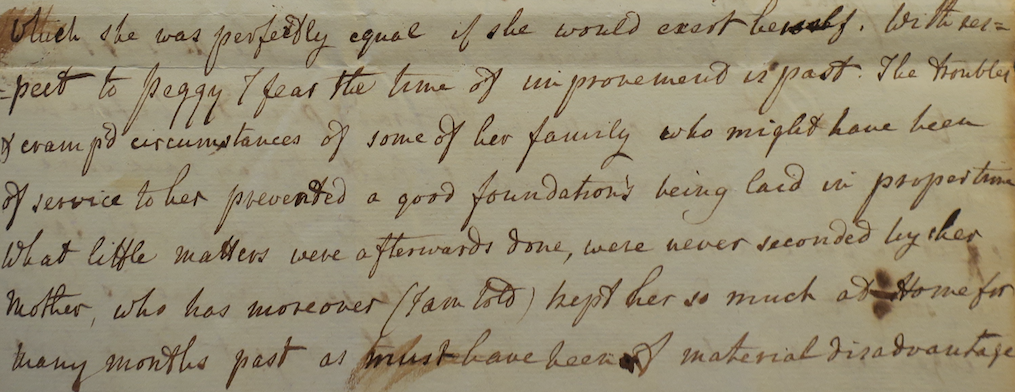 Which she was perfectly equal if she would exert herself. With res=
=pect to Peggy I fear the time of improvement is past. The troubles
& cramp'd circumstances of some of her family who might have been
of service to her prevented a good foundation's being laid in proper time
What little matters were afterwards done, were never seconded by her
Mother, who has moreover (I am told) kept her so much at Home for
many months past as must have been of material disadvantage